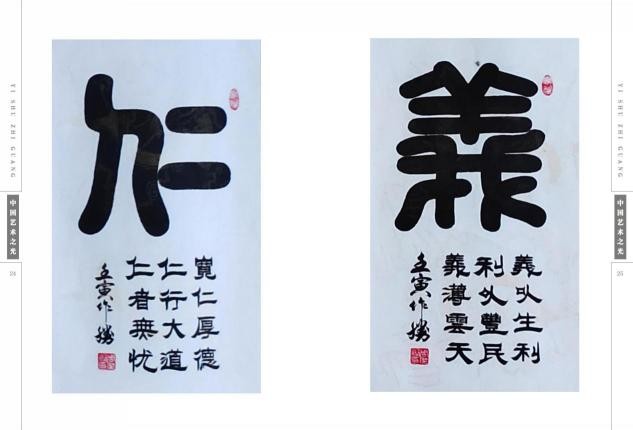 YI SHU ZHI GUANG
中国艺术之光
24
仁
寬仁厚德
仁行大道
仁者無忧
壬寅作勝
義
義以生利
利以豐民
義薄雲天
壬寅作勝
YI SHU ZHI GUANG
中国艺术之光
25